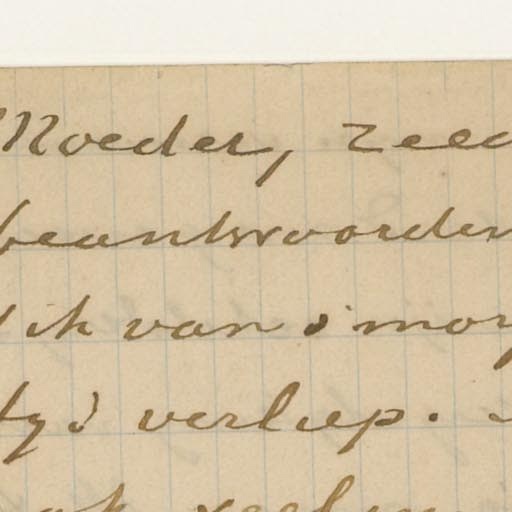 Moeder, zeer
beantwoorden
ik van s'mor
tyd verliep.